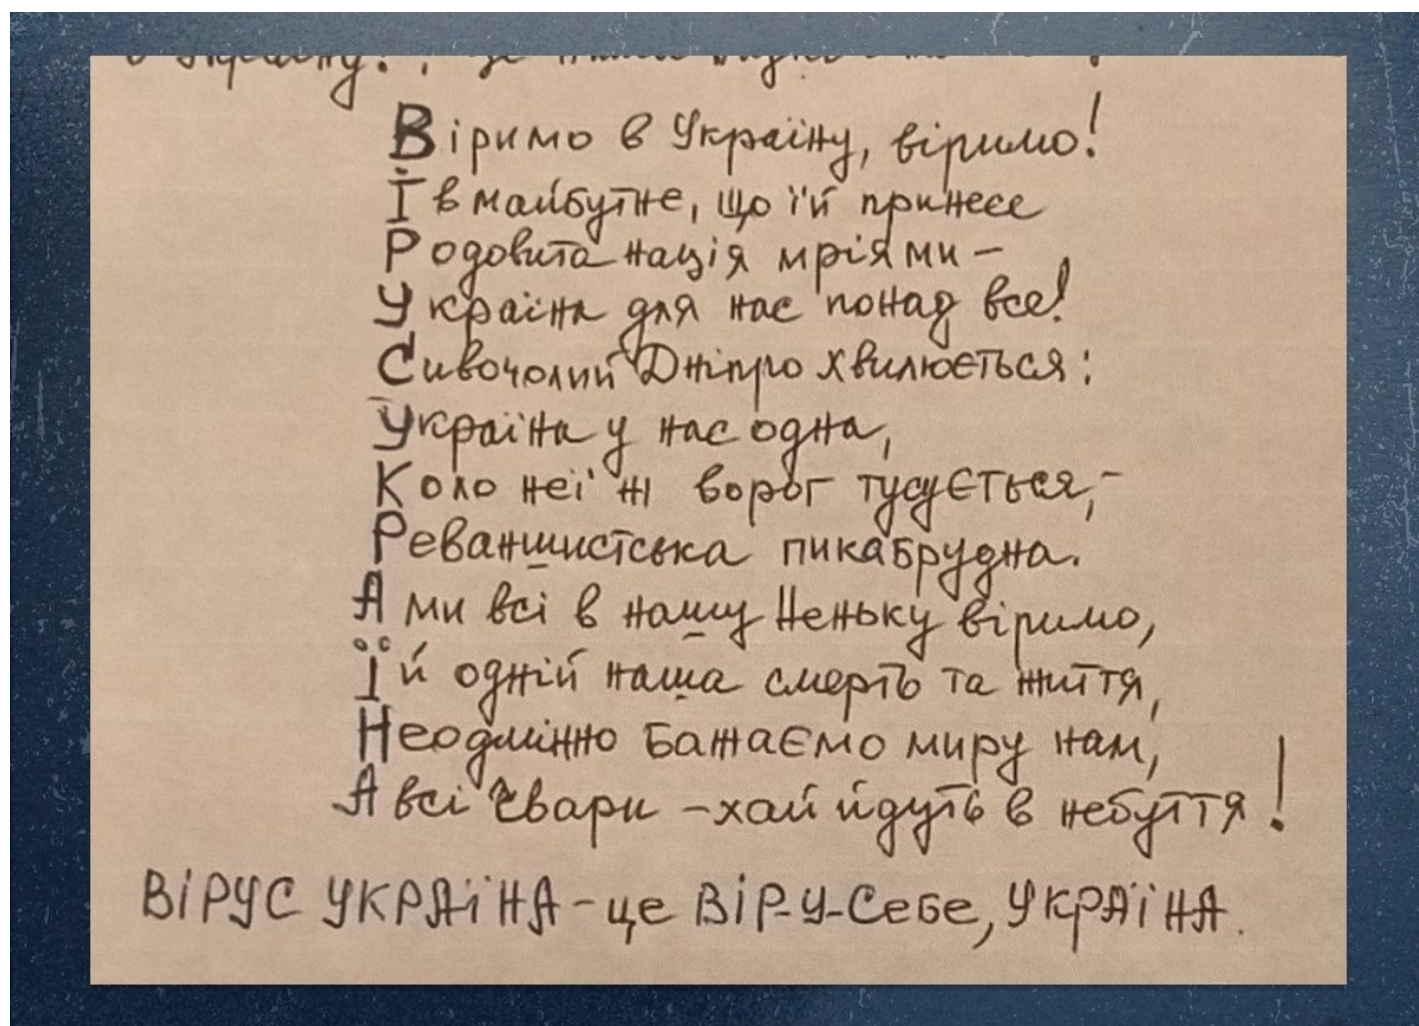 в Україну!
Віримо в Україну, віримо!
І в майбутнє, що їй принесе
Родовита нація мріями –
Україна для нас понад все!
Сивочолий Дніпро хвилюється:
Україна у нас одна,
Коло неї ж ворог тусується, –
Реваншистська пика брудна.
А ми всі в нашу Неньку віримо,
Їй одній наша смерть та життя,
Неодмінно бажаємо миру нам,
А всі чвари – хай йдуть в небуття!
ВІРУС УКРАЇНА – це ВІР-У-Себе, УКРАЇНА.